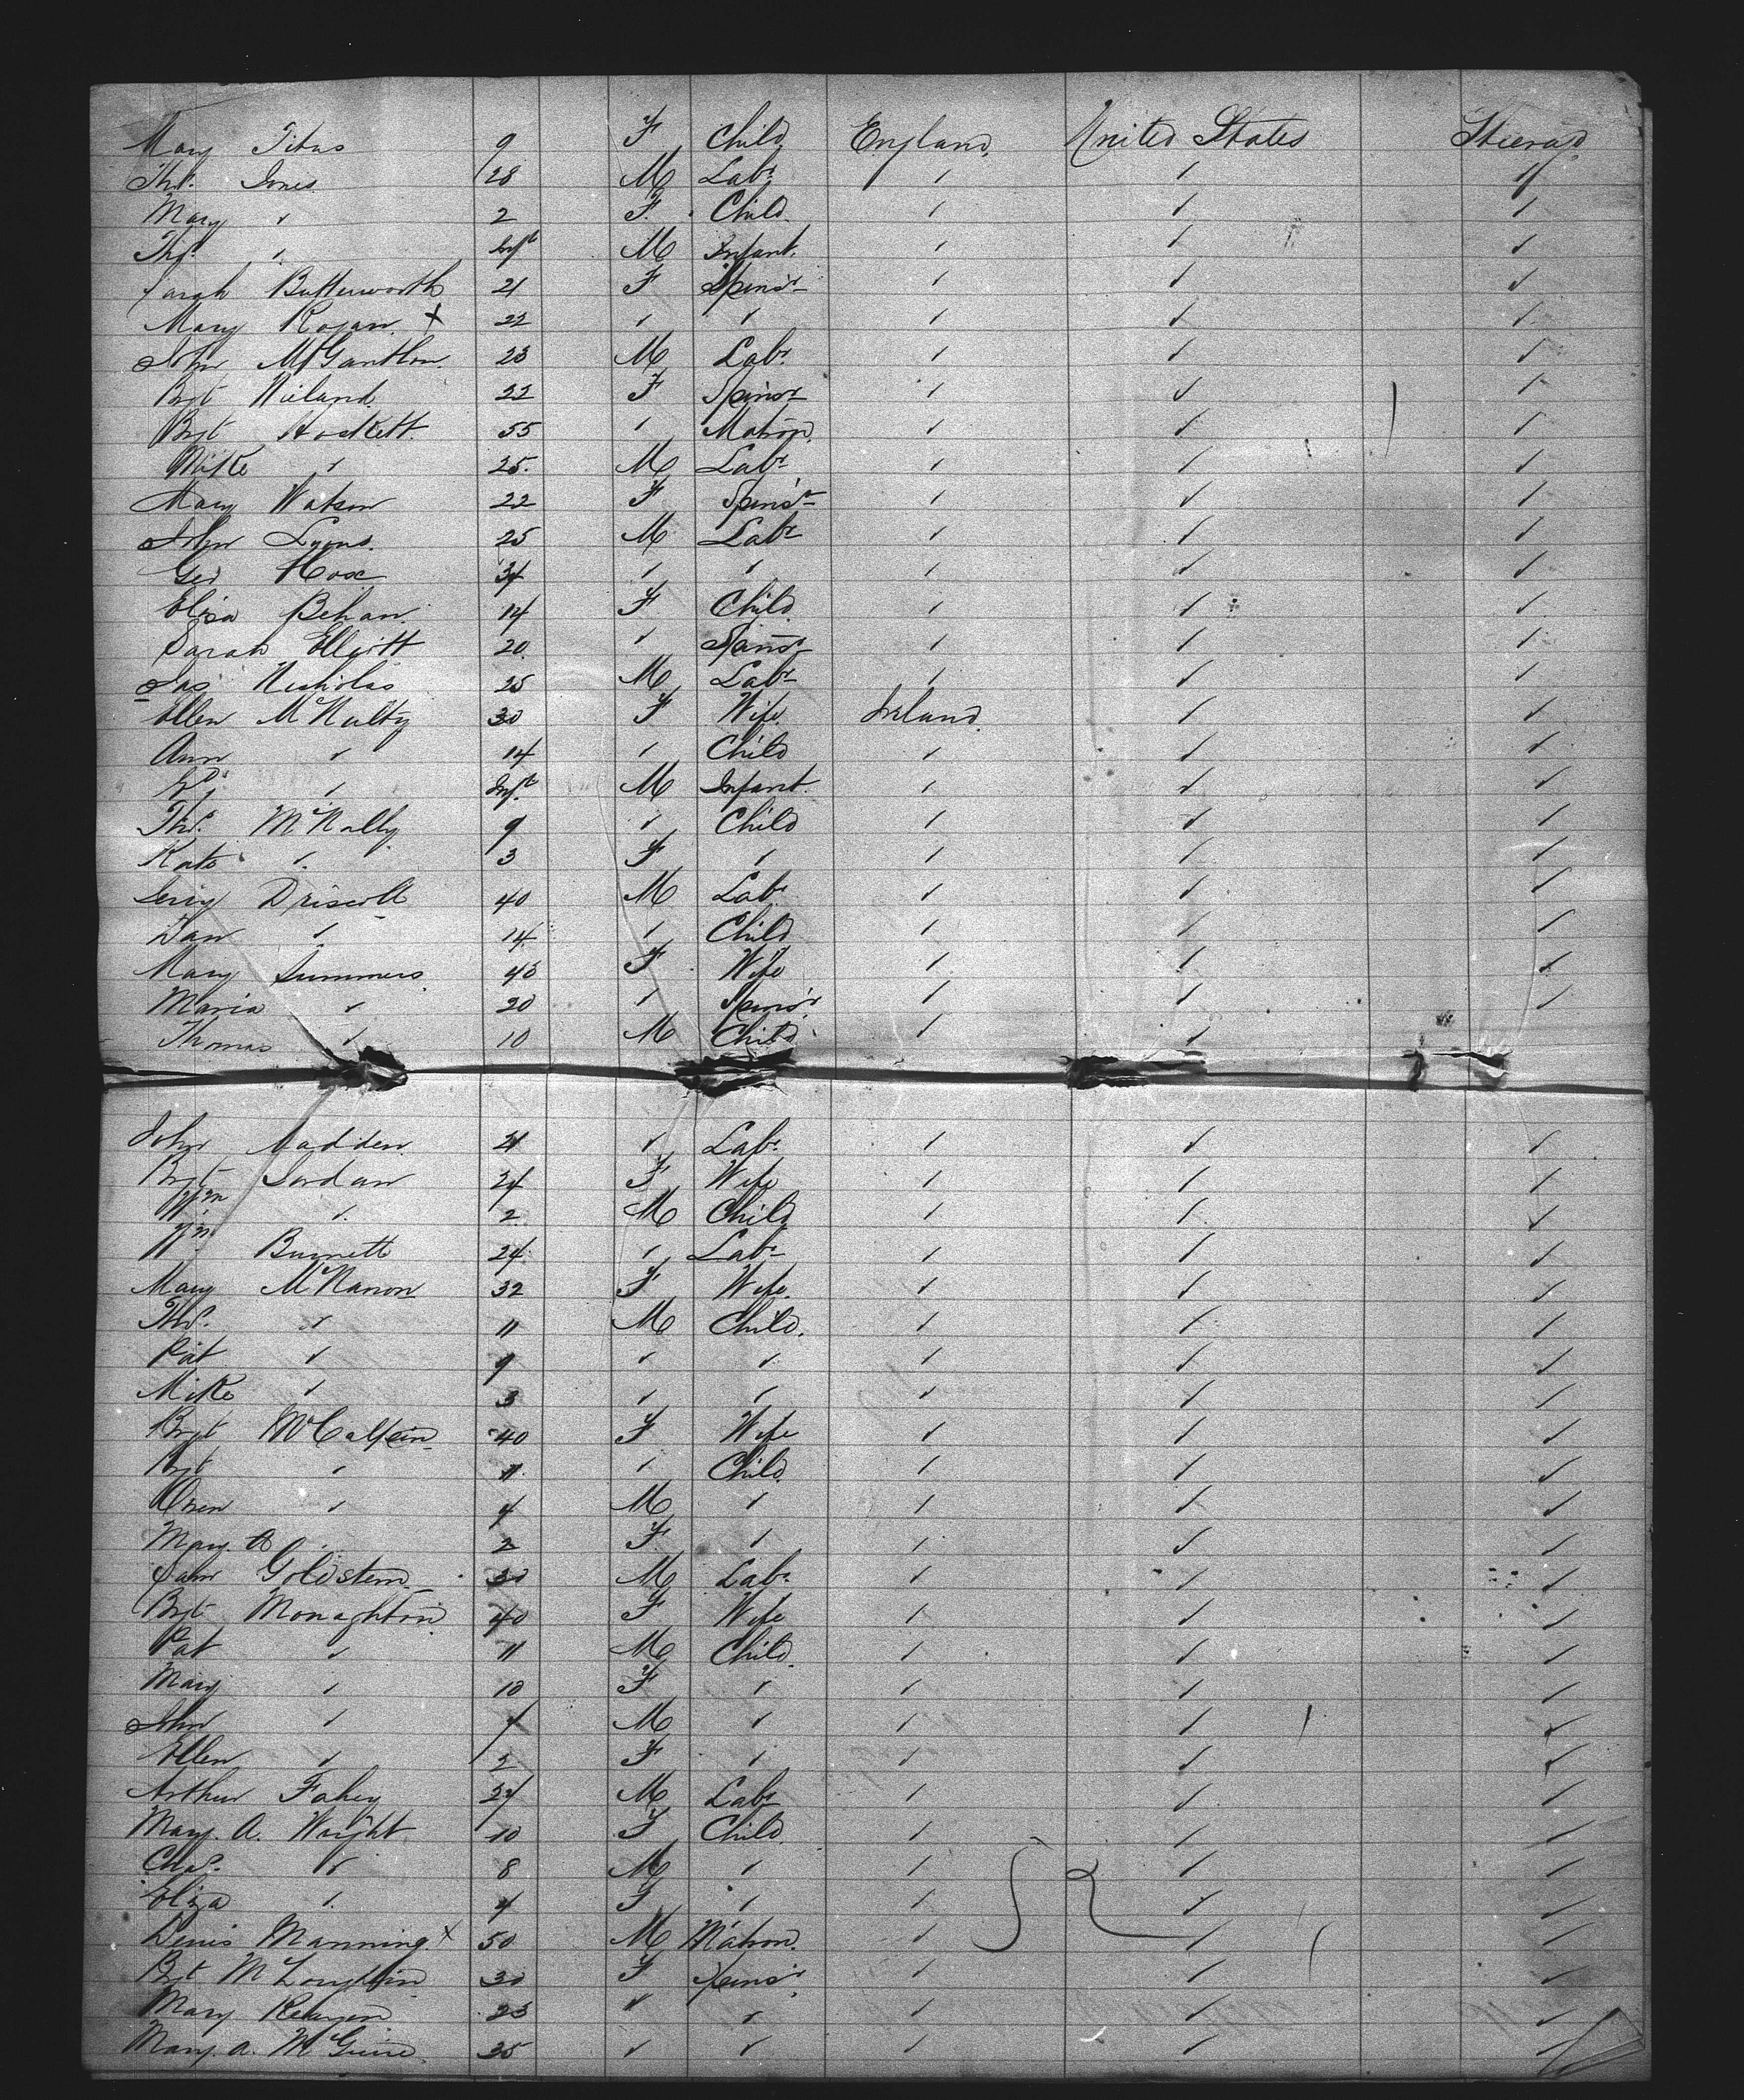 Mary Titus 9 F Child England United States Steerage
Thos. Jones 28 M Labr ✓ ✓ ✓
Mary ✓ 2 F. Child. ✓ ✓ ✓
Thos. ✓ Inft M Infant. ✓ ✓ ✓
Sarah Butterworth 21 F Spinsr ✓ ✓ ✓
Mary Rogan. X 22 ✓ ✓ ✓ ✓ ✓
John 23 M Labr ✓ ✓ ✓
Bgt Nieland. 22 F Spinsr ✓ ✓ ✓
Bgt Hockett. 55 ✓ Matron. ✓ ✓ ✓
Mike ✓ 25. M Labr ✓ ✓ ✓
Mary Watson 22 F Spinsr ✓ ✓ ✓
John Lyons. 25 M Labr ✓ ✓ ✓
Geo 34 ✓ ✓ ✓ ✓ ✓
Eliza Behan. 14 F Child ✓ ✓ ✓
Sarah Elliott 20 ✓ Spinsr ✓ ✓ ✓
Jas Nicholas 25 M Labr ✓ ✓ ✓
Ellen McNulty 30 F Wife. Ireland ✓ ✓
Ann ✓ 14 ✓ Child ✓ ✓ ✓
✓ Inft. M Infant. ✓ ✓ ✓
Thos. McNally 9 ✓ Child ✓ ✓ ✓
Kate ✓ 3 F ✓ ✓ ✓ ✓
Jerry Driscoll 40 M Labr ✓ ✓ ✓
Dan ✓ 14 ✓ Child ✓ ✓ ✓
Mary Summers 40 F Wife ✓ ✓ ✓
Maria ✓ 20 ✓ Spinsr ✓ ✓ ✓
Thomas ✓ 10 M Child ✓ ✓
John Madden 21 ✓ Labr ✓ ✓ ✓
Bgt Jordan 24 F Wife ✓ ✓ ✓
Wm ✓ 2 M Child ✓ ✓ ✓
Wm Burnett 24 ✓ Labr ✓ ✓ ✓
Mary 32 F Wife. ✓ ✓ ✓
Thos. ✓ 11 M Child. ✓ ✓ ✓
Pat ✓ 9 ✓ ✓ ✓ ✓ ✓
Mike ✓ 3 ✓ ✓ ✓ ✓ ✓
Bgt 40 F Wife ✓ ✓ ✓
Bgt ✓ 11. ✓ Child ✓ ✓ ✓
Owen ✓ 4 M ✓ ✓ ✓ ✓
Mary. A ✓ 2 F ✓ ✓ ✓ ✓
Goldstein 30 M Labr ✓ ✓ ✓
Bgt Monaghton 40 F Wife ✓ ✓ ✓
Pat ✓ 11 M Child. ✓ ✓ ✓
Mary ✓ 10 F ✓ ✓ ✓ ✓
John ✓ M ✓ ✓ ✓ ✓
Ellen ✓ 2 F ✓ ✓ ✓ ✓
Arthur Fahey 24 M Labr ✓ ✓ ✓
Mary. A. Wright 10 F Child ✓ ✓ ✓
Chas. ✓ 8 M ✓ ✓ ✓ ✓
Eliza ✓ 4 F ✓ ✓ ✓ ✓
Denis Manning. X 50 M Matron. ✓ ✓ ✓
Bgt McLoughlin 30 F Spinsr ✓ ✓ ✓
Mary 23 ✓ ✓ ✓ ✓ ✓
Mary. A. McGuire. 35 ✓ ✓ ✓ ✓ ✓